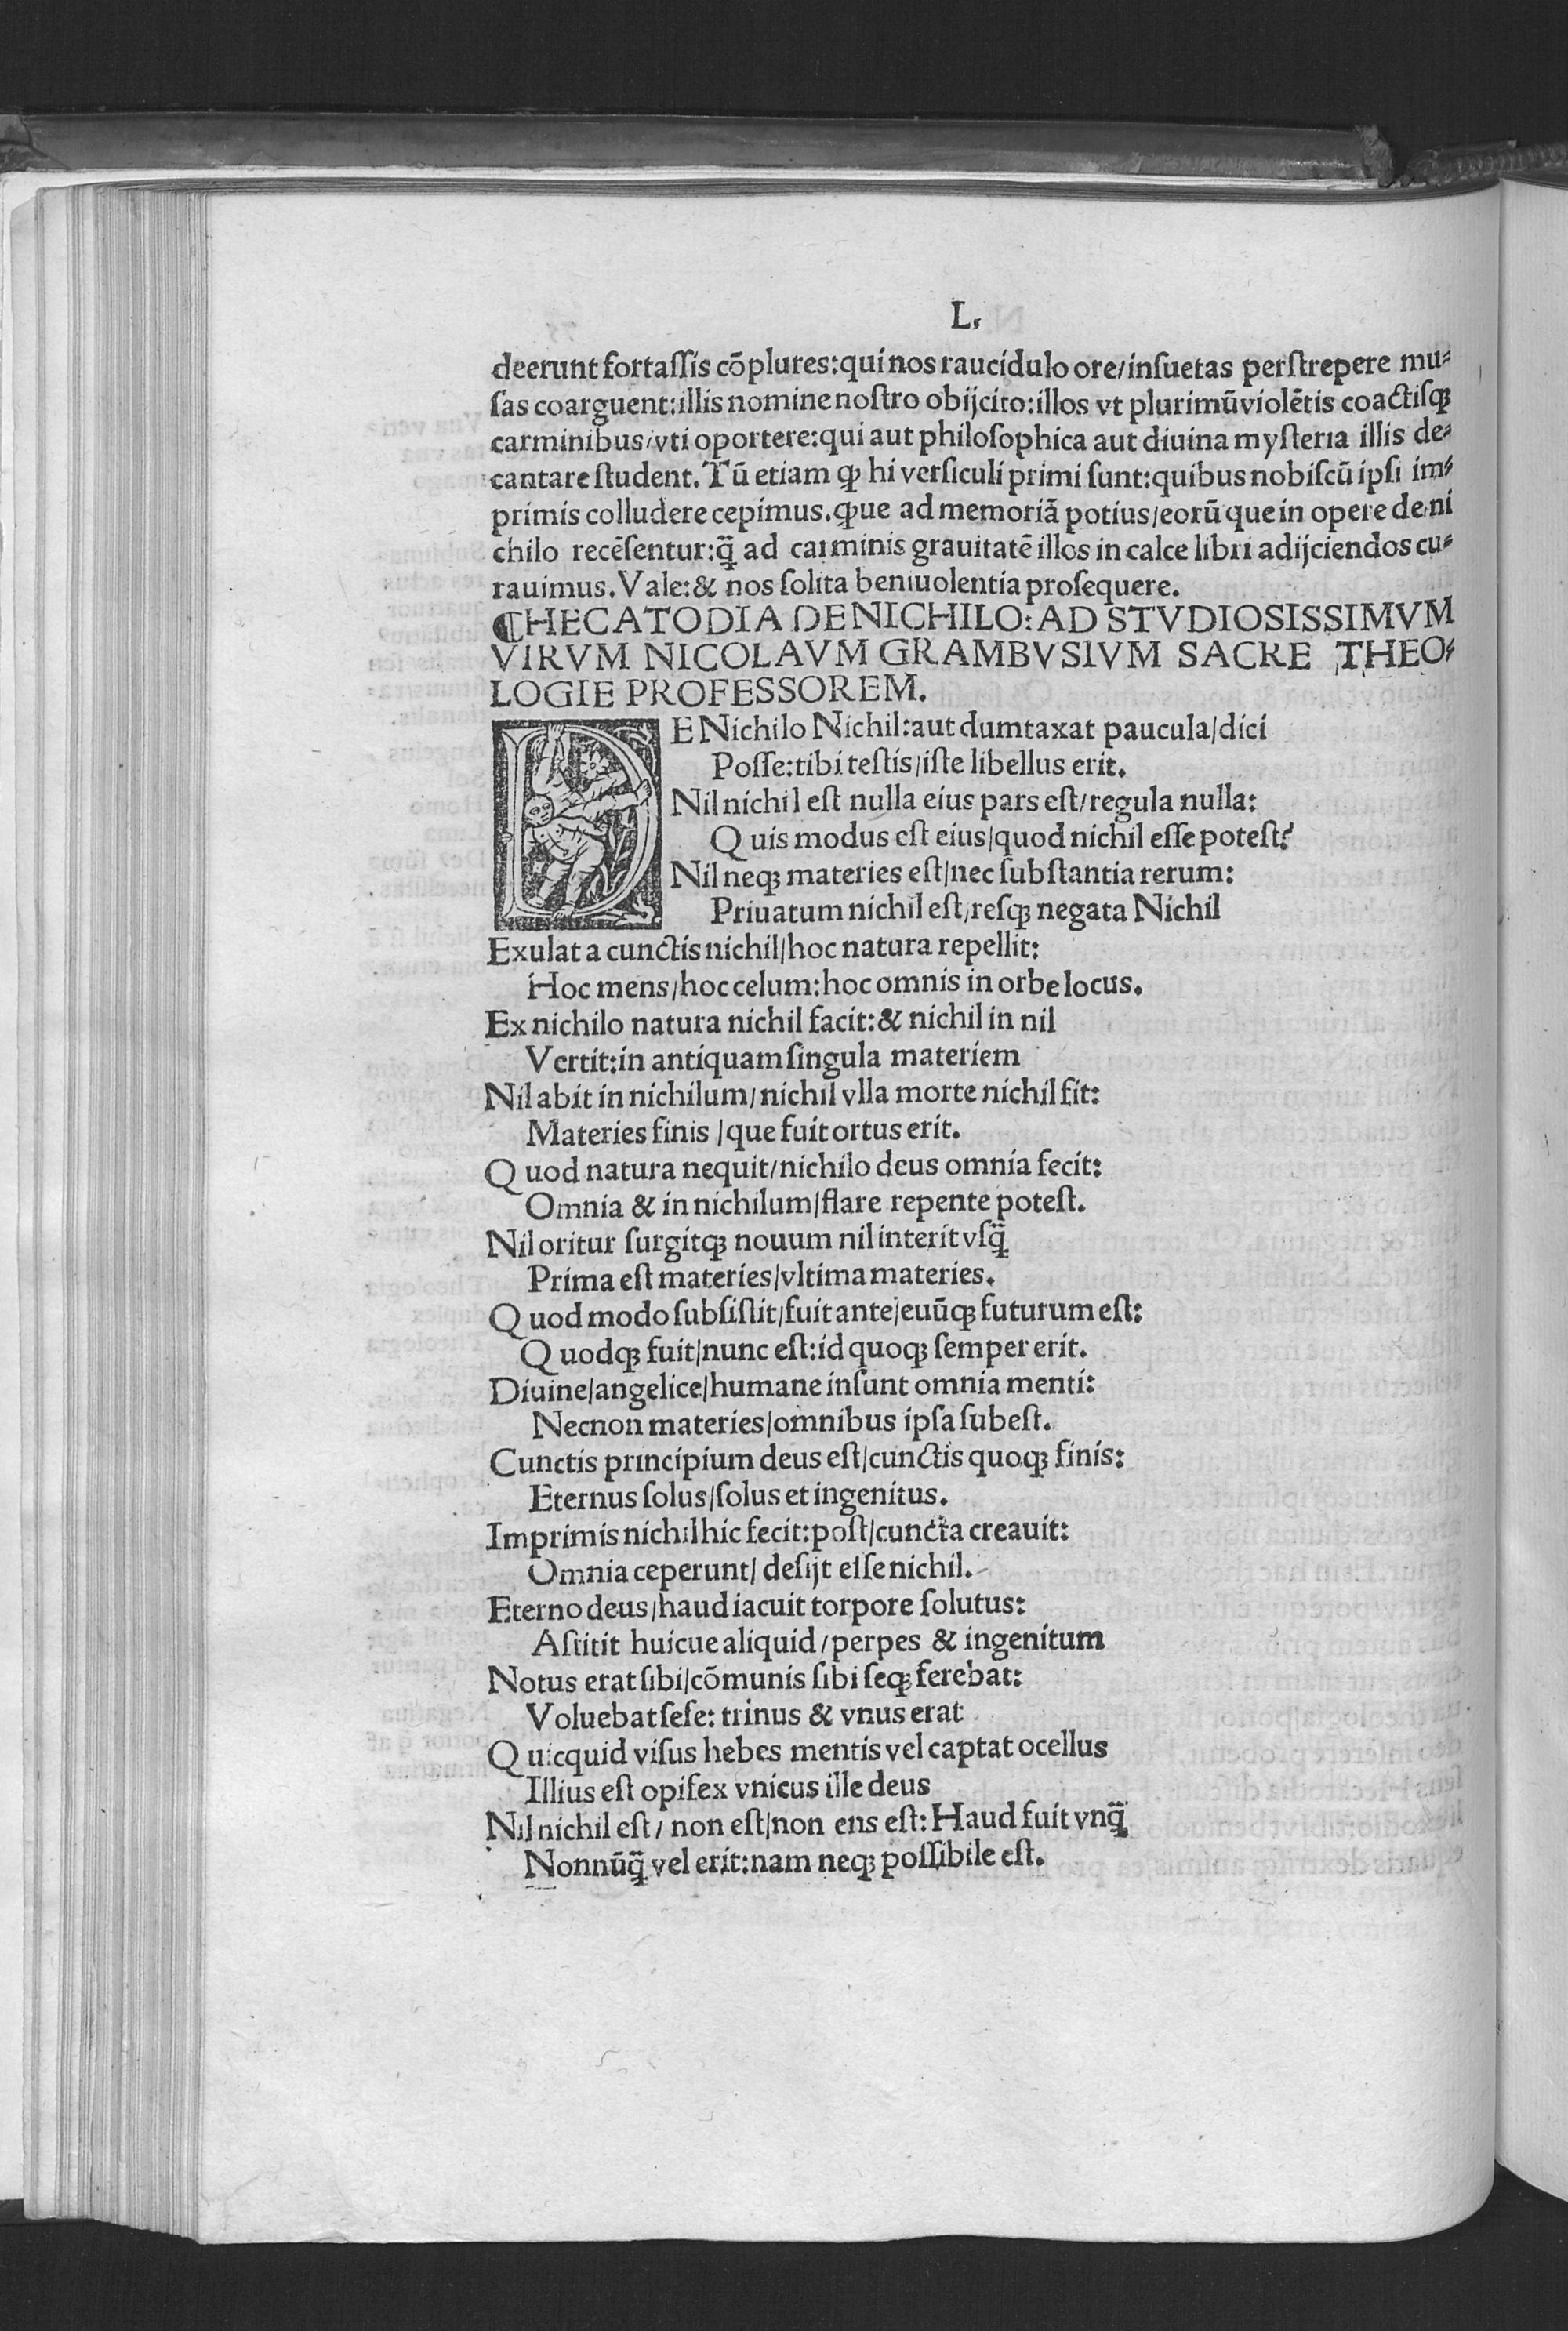 L.
deerunt fortaſſis cõplures:qui nos raucidulo ore/inſuetas perſtrepere mu⸗
ſas coarguent:illis nomine noſtro obijcito:illos vt plurimũ violẽtis coactiſqȝ
carminibus/vti oportere:qui aut philoſophica aut diuina myſteria illis de⸗
cantare ſtudent. Tũ etiam ꝙ hi verſiculi primi ſunt:quibus nobiſcũ ipſi im⸗
primis colludere cepimus.ꝙue ad memoriã potius/eorũ que in opere de ni
chilo recẽſentur:q̃ ad carminis grauitatẽ illos in calce libri adijciendos cu⸗
rauimus. Vale:& nos ſolita beniuolentia proſequere.
¶HECATODIA DE NICHILO: AD STVDIOSISSIMVM
VIRVM NICOLAVM GRAMBVSIVM SACRE THEO⸗
LOGIE PROFESSOREM.
DE Nichilo Nichil:aut dumtaxat paucula/dici
Poſſe:tibi teſtis/iſte libellus erit.
Nil nichil eſt nulla eius pars eſt/regula nulla:
Quis modus eſt eius/quod nichil eſſe poteſt?
Nil neqȝ materies eſt/nec ſubſtantia rerum:
Priuatum nichil eſt/reſqȝ negata Nichil
Exulat a cunctis nichil/hoc natura repellit:
Hoc mens/hoc celum:hoc omnis in orbe locus.
Ex nichilo natura nichil facit:& nichil in nil
Vertit:in antiquam ſingula materiem
Nil abit in nichilum/nichil vlla morte nichil fit:
Materies finis /que fuit ortus erit.
Quod natura nequit/nichilo deus omnia fecit:
Omnia & in nichilum/flare repente poteſt.
Nil oritur ſurgitqȝ nouum nil interit vſq̃
Prima eſt materies/vltima materies.
Quod modo ſubſiſtit/fuit ante/euũqȝ futurum eſt:
Quodqȝ fuit/nunc eſt:id quoqȝ ſemper erit.
Diuine/angelice/humane inſunt omnia menti:
Necnon materies/omnibus ipſa ſubeſt.
Cunctis principium deus eſt/cunctis quoqȝ finis:
Eternus ſolus/ſolus et ingenitus.
Imprimis nichil hic fecit:poſt/cuncta creauit:
Omnia ceperunt/ deſijt eſſe nichil.
Eterno deus/haud iacuit torpore ſolutus:
Aſtitit huicue aliquid/perpes & ingenitum
Notus erat ſibi/cõmunis ſibi ſeqȝ ferebat:
Voluebat ſeſe: trinus & vnus erat
Quicquid viſus hebes mentis vel captat ocellus
Illius eſt opifex vnicus ille deus
Nil nichil eſt/ non eſt/non ens eſt: Haud fuit vnq̃
Nonnũq̃ vel erit:nam neqȝ poſſibile eſt.